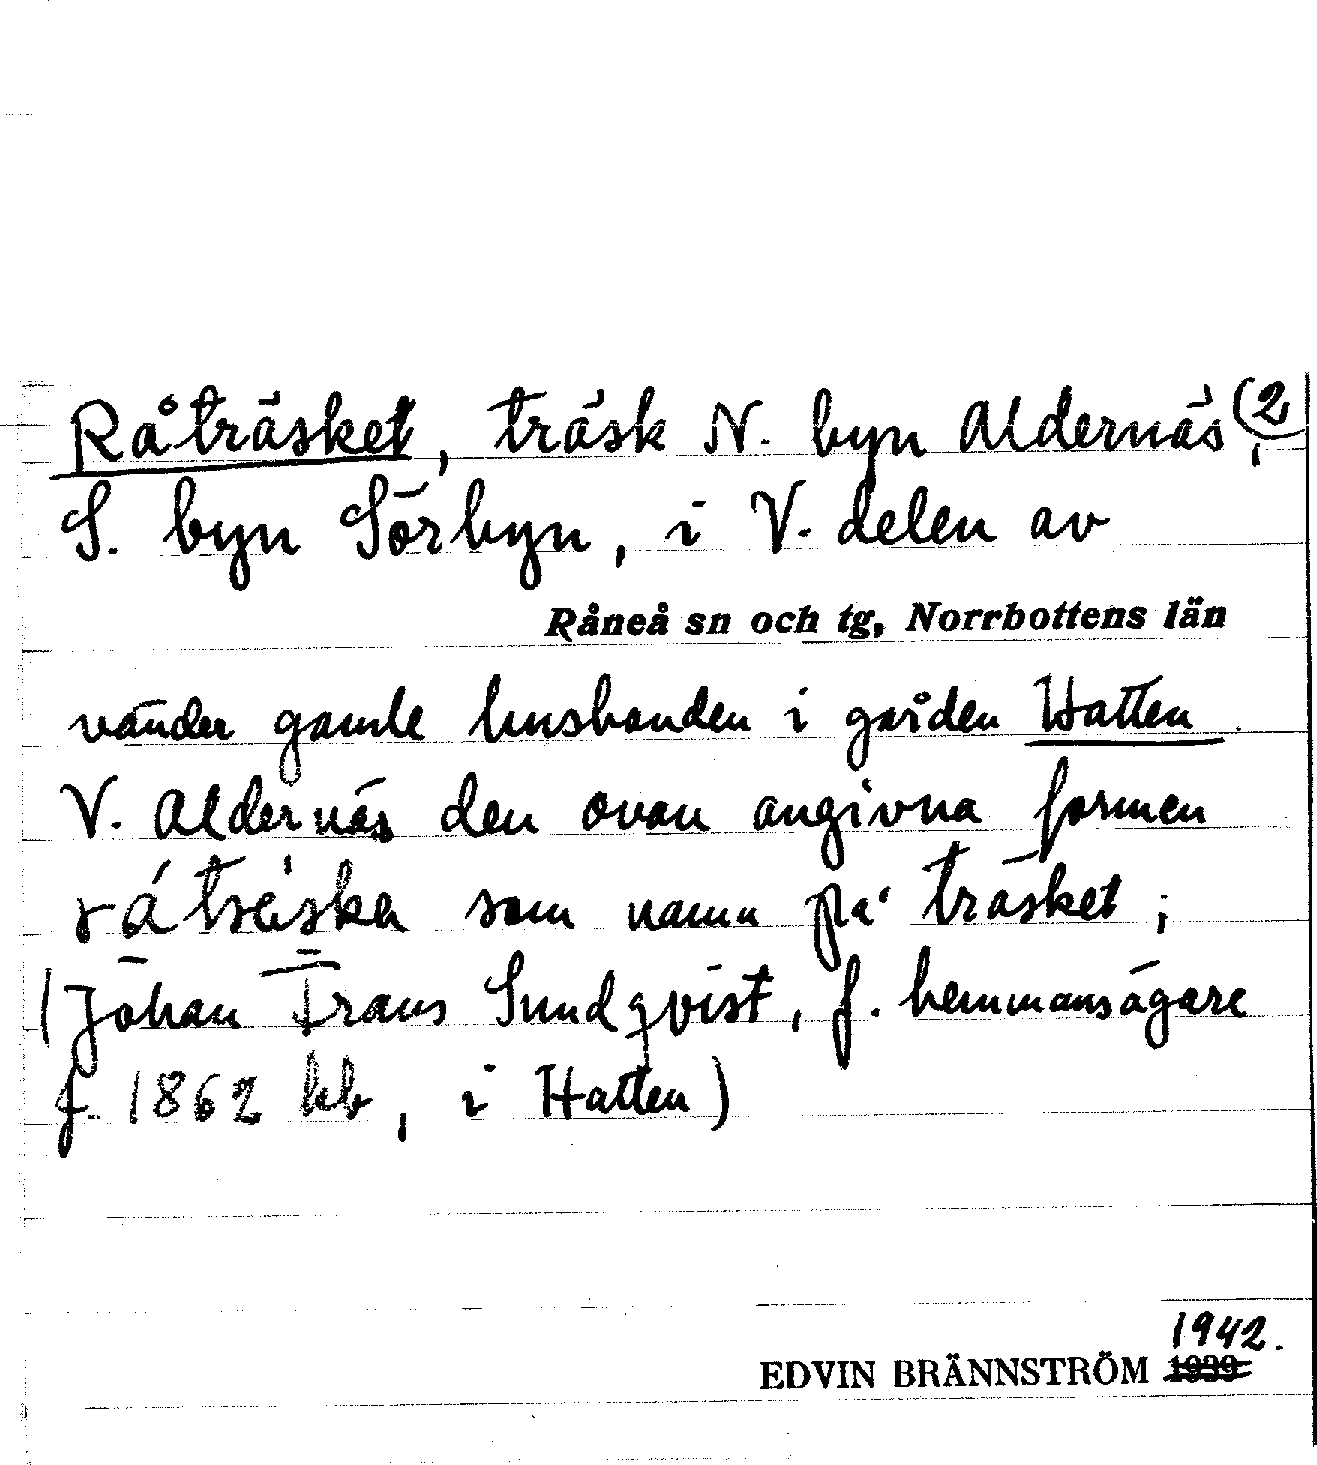 Råträsket, träsk N. byn Aldernäs, (2
S. byn Sörbyn, i V. delen av
Råneå sn och tg, Norrbottens län
vänder gamle husbonden i gården Hatten
V. Aldernäs den ovan angivna formen
som namn på träsket;
(Johan Frans Sundqvist, f. hemmansägare
f. 1862 hb, i Hatten)
1942.
EDVIN BRÄNNSTRÖM 1939